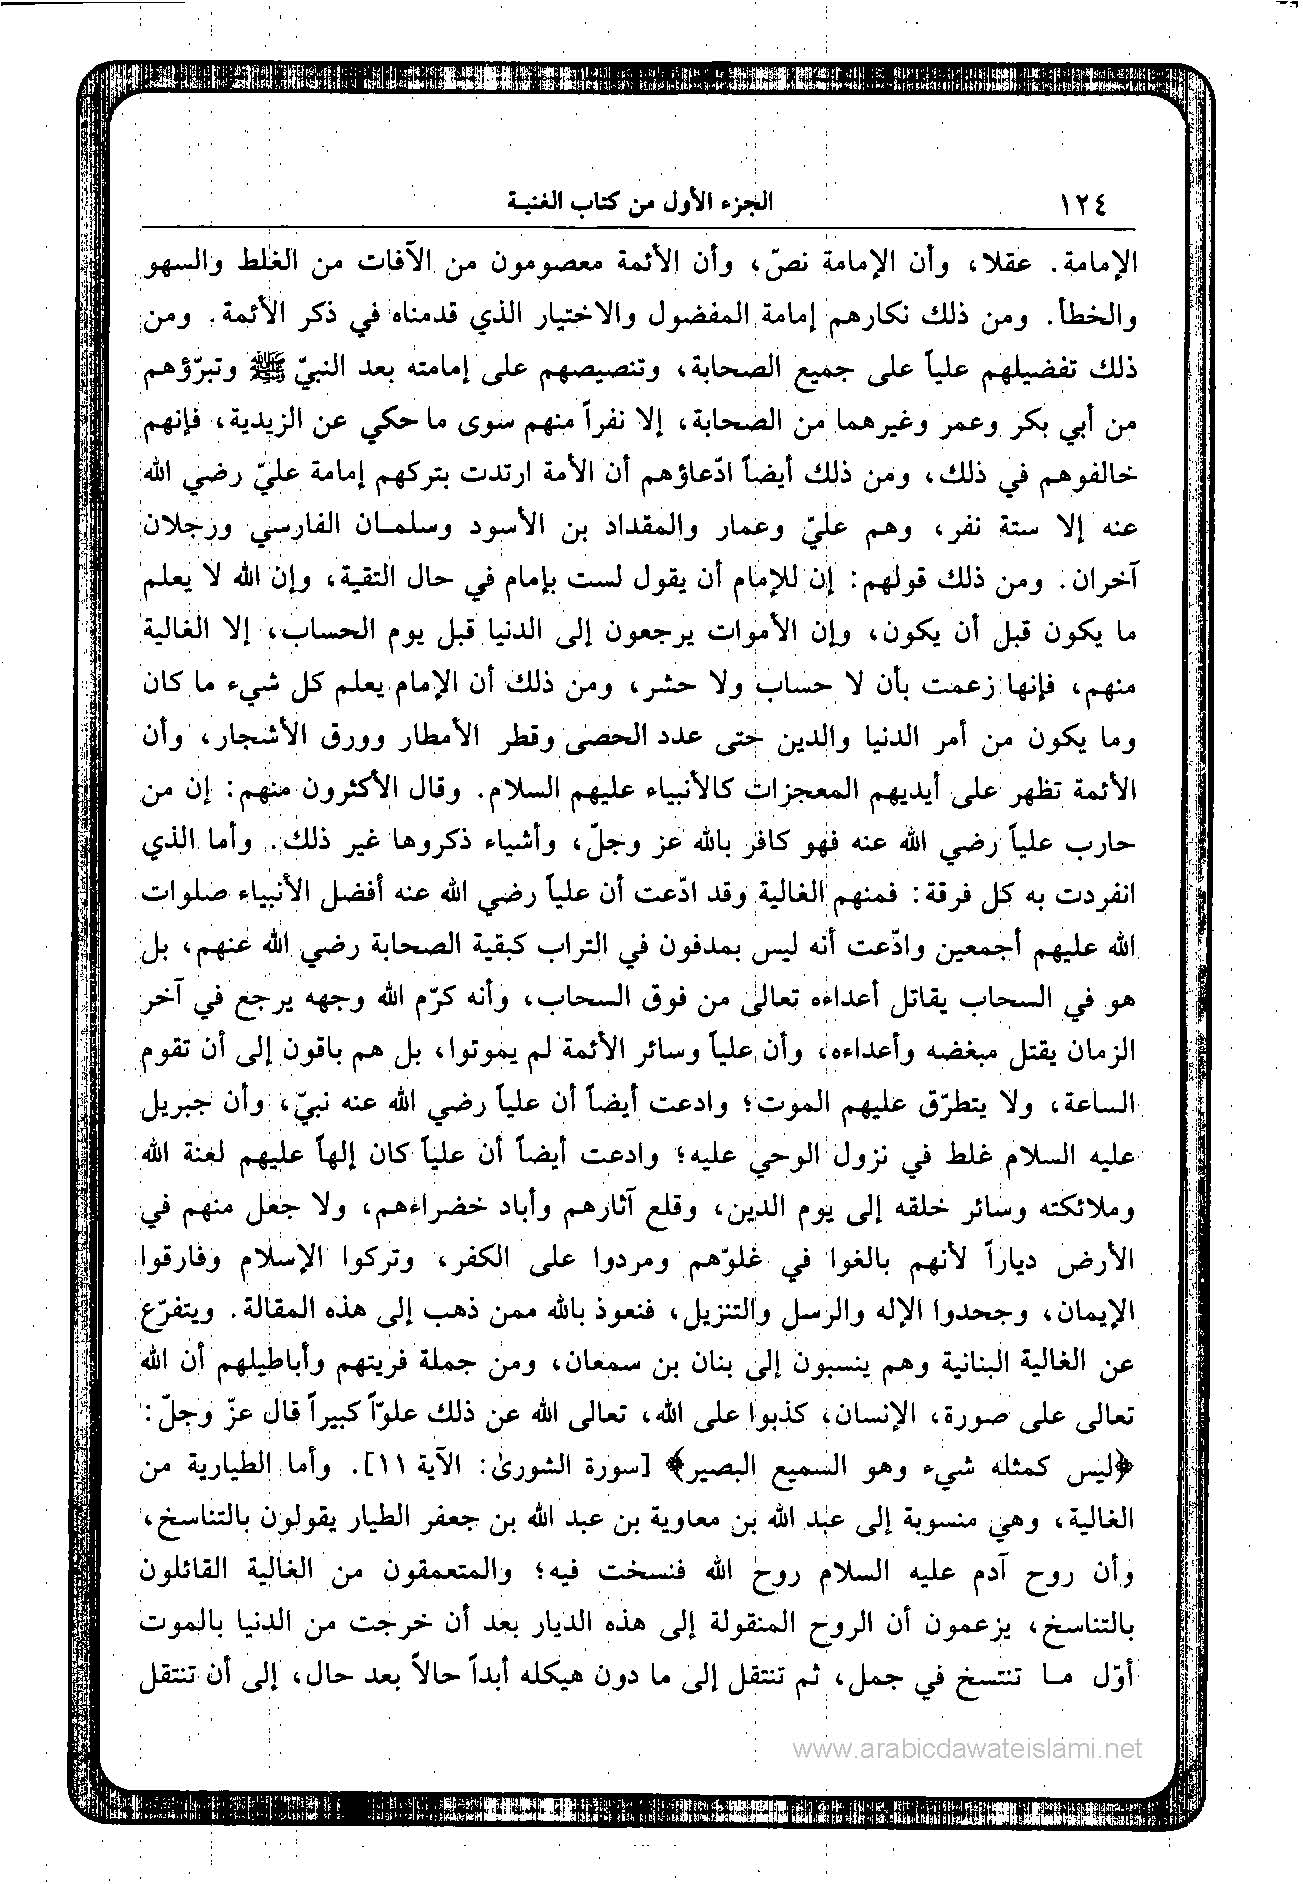 ١٢٤ الجزء الأول من كتاب الغنية
الإمامة. عقلا، وأن الإمامة نصّ، وأن الأئمة معصومون من الآفات من الغلط والسهو
والخطأ. ومن ذلك نكارهم إمامة المفضول والاختيار الذي قدمناه في ذكر الأئمة. ومن
ذلك تفضيلهم علياً على جميع الصحابة، وتنصيصهم على إمامته بعد النبيّ ﷺ وتبرّؤهم
من أبي بكر وعمر وغيرهما من الصحابة، إلا نفراً منهم سوى ما حكي عن الزيدية، فإنهم
خالفوهم في ذلك، ومن ذلك أيضاً ادّعاؤهم أن الأمة ارتدت بتركهم إمامة عليّ رضي الله
عنه إلا ستة نفر، وهم عليّ وعمار والمقداد بن الأسود وسلمان الفارسي ورجلان
آخران. ومن ذلك قولهم: إن للإمام أن يقول لست بإمام في حال التقية، وإن الله لا يعلم
ما يكون قبل أن يكون، وإن الأموات يرجعون إلى الدنيا قبل يوم الحساب، إلا الغالية
منهم، فإنها زعمت بأن لا حساب ولا حشر، ومن ذلك أن الإمام يعلم كل شيء ما كان
وما يكون من أمر الدنيا والدين حتى عدد الحصى وقطر الأمطار وورق الأشجار، وأن
الأئمة تظهر على أيديهم المعجزات كالأنبياء عليهم السلام. وقال الأكثرون منهم: إن من
حارب علياً رضي الله عنه فهو كافر بالله عز وجلّ، وأشياء ذكروها غير ذلك. وأما الذي
انفردت به كل فرقة: فمنهم الغالية وقد ادّعت أن علياً رضي الله عنه أفضل الأنبياء صلوات
الله عليهم أجمعين وادّعت أنه ليس بمدفون في التراب كبقية الصحابة رضي الله عنهم، بل
هو في السحاب يقاتل أعداءه تعالى من فوق السحاب، وأنه كرّم الله وجهه يرجع في آخر
الزمان يقتل مبغضه وأعداءه، وأن علياً وسائر الأئمة لم يموتوا، بل هم باقون إلى أن تقوم
الساعة، ولا يتطرّق عليهم الموت؛ وادعت أيضاً أن علياً رضي الله عنه نبيّ، وأن جبريل
عليه السلام غلط في نزول الوحي عليه؛ وادعت أيضاً أن علياً كان إلهاً عليهم لعنة الله
وملائكته وسائر خلقه إلى يوم الدين، وقلع آثارهم وأباد خضراءهم، ولا جعل منهم في
الأرض دياراً لأنهم بالغوا في غلوّهم ومردوا على الكفر، وتركوا الإسلام وفارقوا
الإيمان، وجحدوا الإله والرسل والتنزيل، فنعوذ بالله ممن ذهب إلى هذه المقالة. ويتفرّع
عن الغالية البنانية وهم ينسبون إلى بنان بن سمعان، ومن جملة فريتهم وأباطيلهم أن الله
تعالى على صورة، الإنسان، كذبوا على الله، تعالى الله عن ذلك علوّاً كبيراً قال عزّ وجلّ:
﴿ليس كمثله شيء وهو السميع البصير﴾ [سورة الشورى: الآية ١١]. وأما الطيارية من
الغالية، وهي منسوبة إلى عبد الله بن معاوية بن عبد الله بن جعفر الطيار يقولون بالتناسخ،
وأن روح آدم عليه السلام روح الله فنسخت فيه؛ والمتعمقون من الغالية القائلون
بالتناسخ، يزعمون أن الروح المنقولة إلى هذه الديار بعد أن خرجت من الدنيا بالموت
أوّل ما تنتسخ في جمل، ثم تنتقل إلى ما دون هيكله أبداً حالاً بعد حال، إلى أن تنتقل
www.arabicdawateislami.net